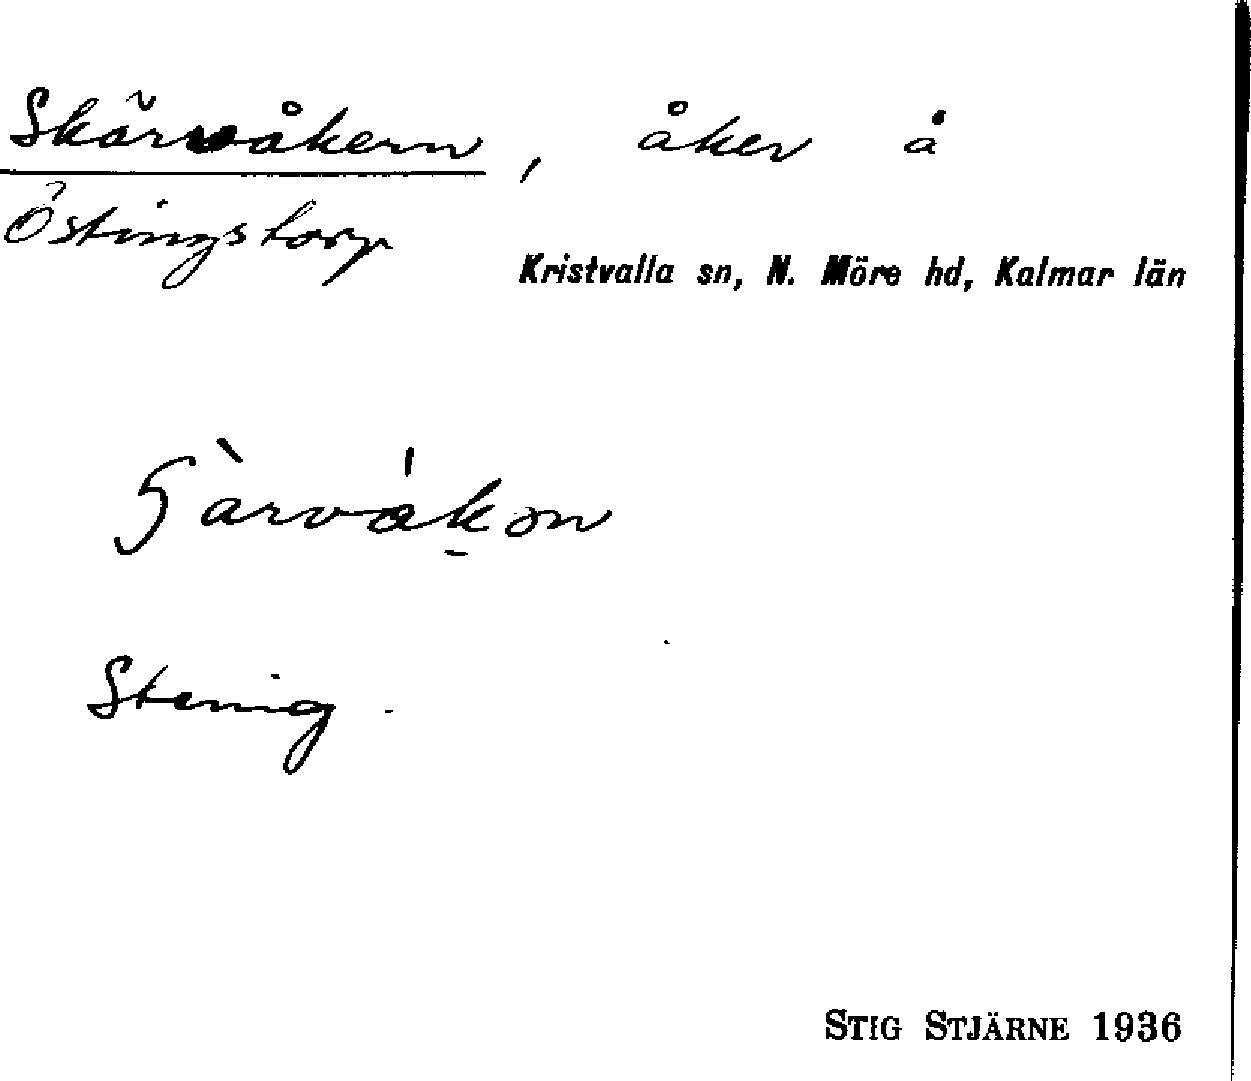 Skärvåkern, åker å
Östingstorp
Kristvalla sn, N. Möre hd, Kalmar län
Stenig.
STIG STJÄRNE 1936